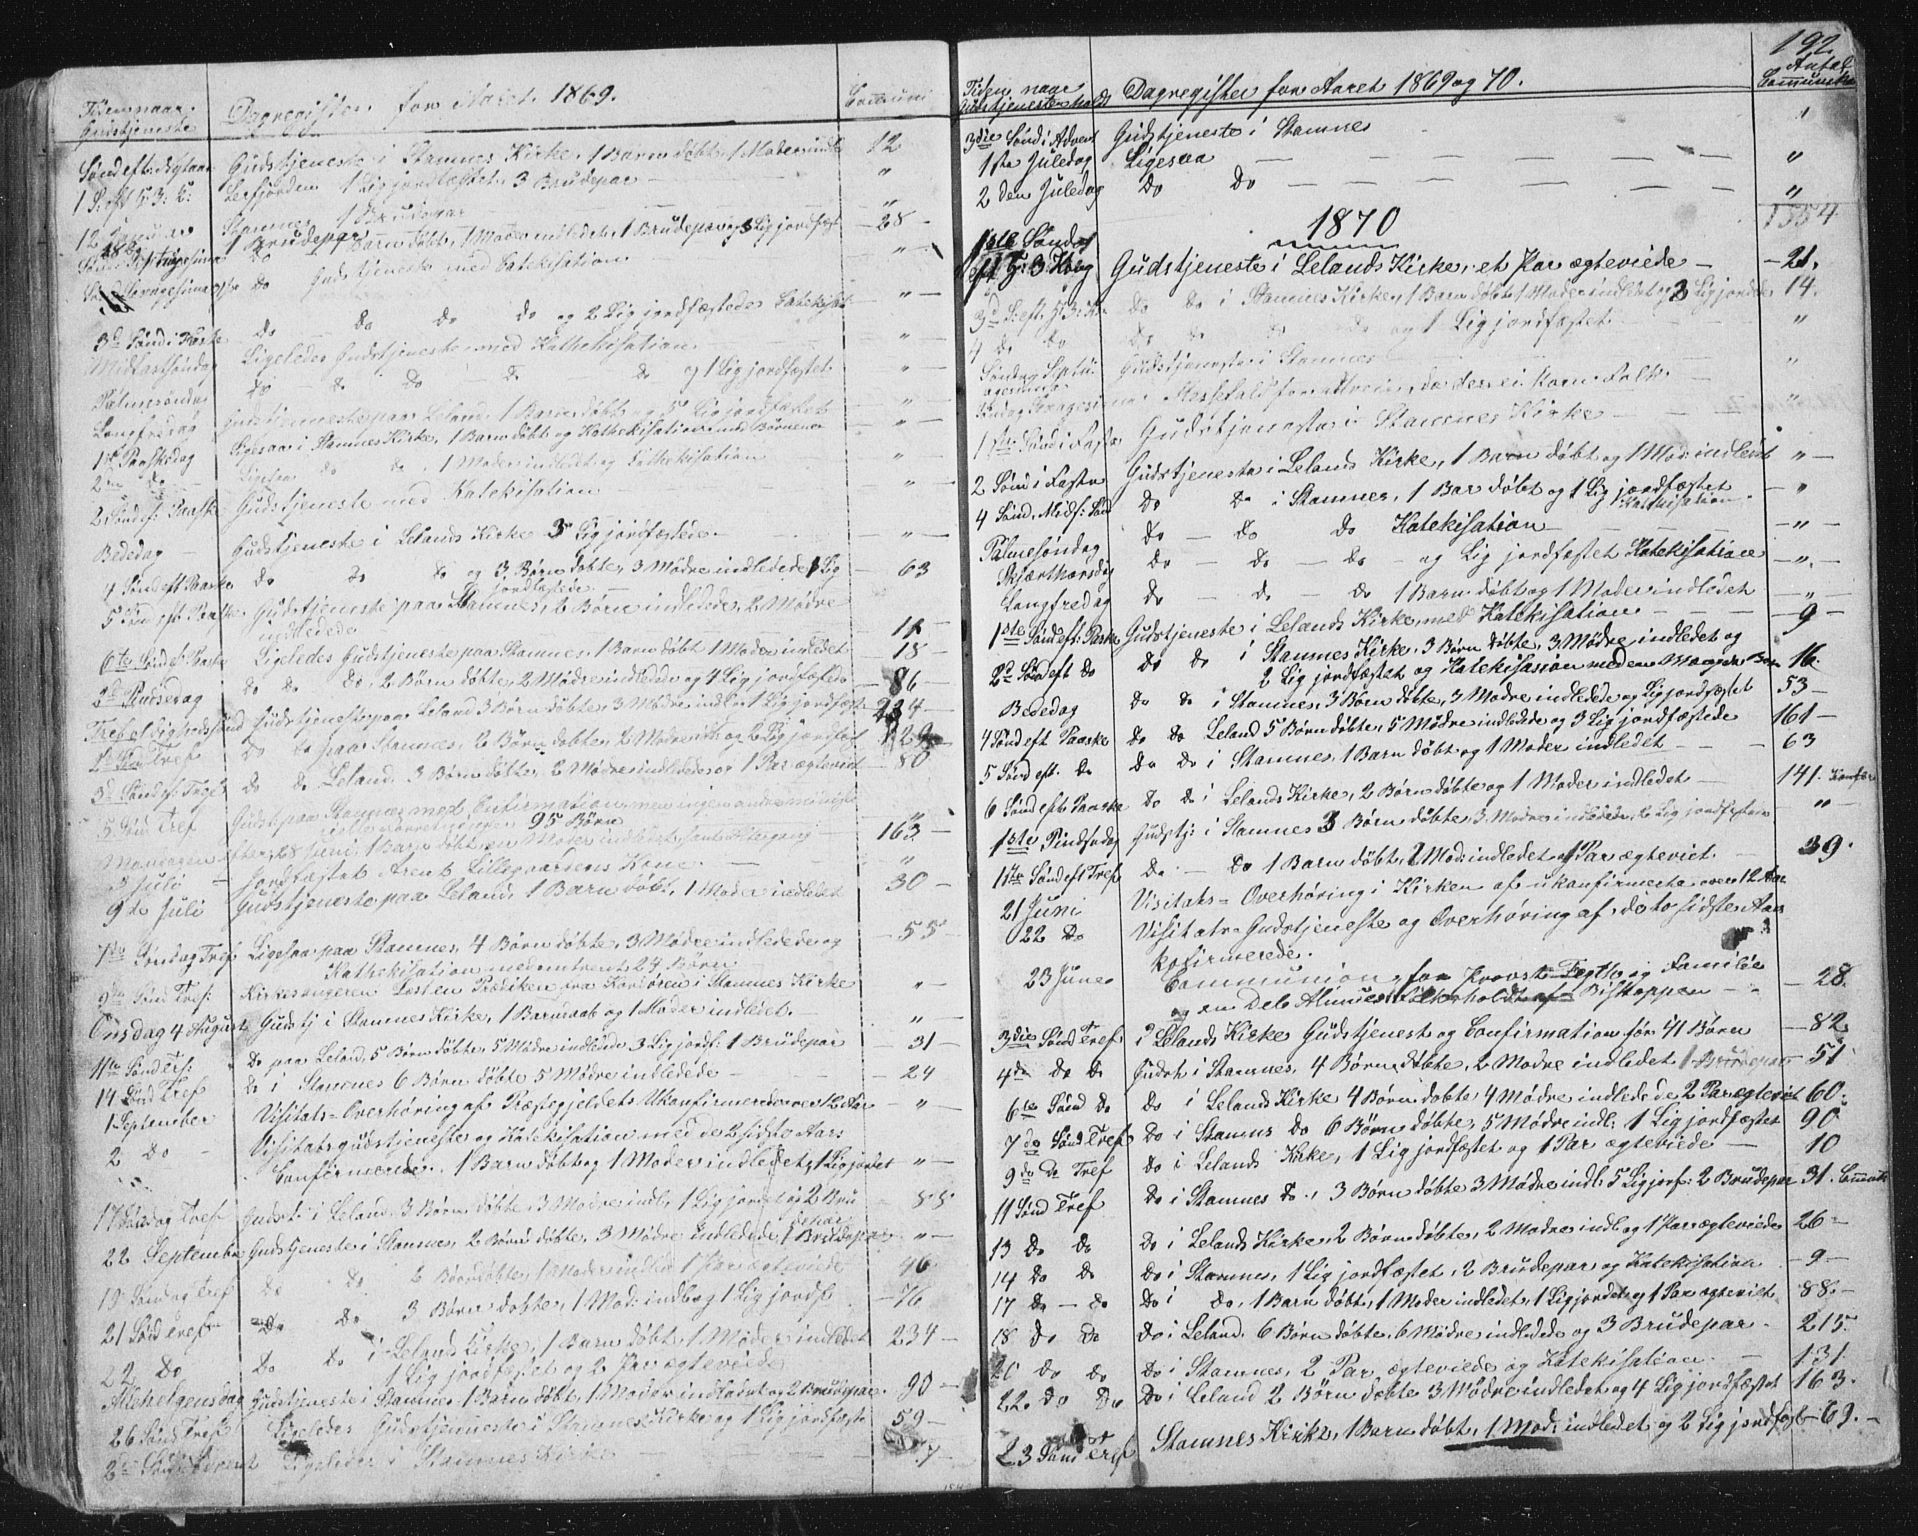 Tiden naar Gudstjeneste
Dagregister for Aaret 1869.
Communi
Sønd eft: Nytaar Gudstjeneste i Stamnes Kirke, 1 Barn døbt, 1 Moder indle 12
1 S: eft H. 3. K: Leirfjorden 1 Lig jordfæstet, 3 Brudepar — "
Stamnes 1 Brudepar — "
1 Barn døbt, 1 Moder indledet, 1 Brudepar og 3 Lig jordfæst — 28 —
Do Gudstjeneste med Catekisation — " —
Do Do Do Do og 2 Lig jordfæstede Catekisat — " —
3d Sønd i Faste
Midfastsøndag Ligeledes Gudstjeneste med Kathekisation — " —
Palmesøndag Do Do Do Do Do og 1 Lig jordfæstet — " —
Langfredag Gudstjeneste paa Leland, 1 Barn døbt og 5 Lig jordfæstet — " —
1ste Paaskedag Ligesaa i Stamnes Kirke, 1 Barn døbt og Kathekisation med Børnene — " —
2den do — Ligesaa do do, 1 Moder indledet og Kathekisation — " —
2 Sønd ef: Paaske Gudstjeneste med Katekisation — " —
Bededag — Gudstjeneste i Lelands Kirke 3 Lig jordfæstede. — " —
4 Sønd eft Paaske Do Do Do og 3 Børn døbte, 3 Mødre indledede 1 Lig — 63
jordfæstede
5 Søn eft Paaske Gudstjeneste paa Stamnes, 2 Børn indledede, 2 Mødre
indledede — 11 —
6te Sønd ef: Paaske Ligeledes Gudstjeneste paa Stamnes, 1 Barn døbt 1 Moder indledet — 18 —
2d Pindsedag do Do Do, 2 Børn døbte, 2 Mødre indledede og 4 Lig jordfæstede — 86 —
Trefoldighedssønd Gudstjeneste paa Leland 3 Børn døbte, 3 Mødre indle: 1 Lig jordfæst — 224 —
Do Do paa Stamnes, 2 Børn døbte, 2 Mødre ind: og 2 Lig jordfæst
3d Sønd ef: Tref Do Do Leland. 3 Børn døbte, 2 Mødre indledede og 1 Par ægteviet — 80
5 Sønd Tref Gudst: paa Stamnes med Confirmation men ingen andre ministe
rielle Forretninger 95 Børn — "
Mandagen efter, 28 Juni 1 Barn døbt, en Moder indledet, samt Altergang — 163 —
3 Juli — Jordfæstet Arent Lillegaardsens Kone. — "
9de Juli Gudstjeneste paa Leland, 1 Barn døbt, 1 Moder indledet — 30 —
7de Søndag Tref Ligesaa paa Stamnes, 4 Børn døbte, 3 Mødre indledede og — 55 —
Kathekisation med omtrent 24 Børn
9de Sønd Tref: Kirkesangeren Læsten Prædiken fra Kordøren i Stamnes Kirke — " —
Onsdag 4 August Gudstj i Stamnes Kirke, 1 Barnedaab og 1 Moder indledet. — " —
11te Sønd Tref: Do paa Leland, 5 Børn døbte, 5 Mødre indledede 3 Lig jordf: 1 Brudepar — 31 —
14 Sønd Tref Do i Stamnes 6 Børn døbte 5 Mødre indledede — 24
1 September Visitats=Overhøring af Præstegjeldets Ukonfirmerede over 12 Aar — " —
2 Do — Visitatsgudstjeneste og Katekisation med de 2 sidste Aars
Confirmerede. 1 Barn døbt og 1 Moder indledet, 1 Lig jordet — " —
17 Søndag Tref Gudst: i Leland, 3 Børn døbte, 3 Mødre indle, 1 Lig jordet og 2 Bru — 85
depar
22 September Gudstjeneste i Stamnes, 2 Børn døbte, 3 Mødre indledede, 1 Brudepar — " —
19 Søndag Tref Do Do 2 Børn døbte, 1 Moder indlet 1 Par ægteviede 46
21 Sønd Tref Do Do 3 Børn døbte, 1 Mod: indl og 1 Lig jordf. — 76
22 Do Do Do i Lelands Kirke, 1 Barn døbt, 1 Moder indledet — 234 —
1 Lig jordfæstet og 2 Par ægteviede
Allehelgensdag Gudstjeneste i Stamnes 1 Barn døbt, 1 Moder indledet og 2 Brudepar. — 90 —
26 Sønd Tref Ligeledes Gudstjeneste i Stamnes Kirke og 1 Lig jordfæste — 59 —
2den Sønd Advent Ligeledes i Stamnes Kirke — 7
192
Tiden naar Gudstjenesten holdt
Dagregister for Aaret 1869 og 70.
Antal Communika
3die Sønd i Advent Gudstjeneste i Stamnes "
1ste Juledag Ligesaa — "
2den Juledag Do Do — "
1354
1870
1ste Søndag
eft H: 3 Kong Gudstjeneste i Lelands Kirke, et Par ægteviede — 21.
3d S: eft H: 3: K: Do Do i Stamnes Kirke, 1 Barn døbt 1 Moder indledet og 3 Lig jordede 14.
4 Do Do Do Do Do Do og 1 Lig jordfæstet "
Søndag Septu: Gudstjeneste i Stamnes "
agesima
Søndag Sexagesima Messefald for Uveir, da der ei kom Folk "
1ste Sønd i Faste Gudstjeneste i Stamnes Kirke — "
2 Sønd i Faste Gudstjeneste i Lelands Kirke, 1 Barn døbt og 1 Mod: indledet " —
4 Sønd, Midf: Søn Do Do i Stamnes, 1 Bar døbt og 1 Lig jordfæstet — "
Kathekisation
Palmesøndag Do — Do Do Katekisation — " —
Skjærthorsdag Do — Do — Do — og Lig jordfæstet Katekisation — " —
Langfredag Do — Do — Do 1 Barn døbt og 1 Moder indledet — " —
1ste Sønd eft: Paaske Gudstjeneste i Lelands Kirke med Katekisation — 9 —
2d Sønd eft Do Do Do i Stamnes Kirke, 3 Børn døbte, 3 Mødre indledet og
2 Lig jordfæstet og Katekisasion med en Mængde Børn 16.
Bededag Do Do i Stamnes, 3 Børn døbte, 3 Mødre indledede og Lig jordfæstet 53 —
4 Sønd eft Paaske Do Do Leland 5 Børn døbte, 5 Mødre indledede og 3 Lig jordfæstede 161 —
5 Sønd eft. Do Do Do i Stamnes, 1 Barn døbt og 1 Moder indledet — 63
6 Sønd eft Paaske Do Do i Lelands Kirke, 2 Børn døbte og 1 Moder indledet — 141.
1ste Pindsedag Gudstj: i Stamnes 3 Børn døbte, 3 Mødre indledede, 2 Lig jordfæstede "
1ste Sønd eft Tref Do — Do 1 Barn døbt, 1 Mod: indledet og 1 Par ægteviet — 39.
21 Juni Visitats=Overhøring i Kirken af ukonfirmerte over 12 Aar
22 Do Visitats=Gudstjeneste og Overhøring af de to sidste Aars
Kofirmerede.
23 June Communion for Provst Fegth og Familie — 28.
og en Deel Almue, holdt af Biskoppen —
3die Sønd Tref i Lelands Kirke Gudstjenest og Confirmation for 41 Børn — 82.
4de Do Do Gudst i Stamnes, 4 Børn døbte, 2 Mødre indledet 1 Brudepar — 51
6te Sønd Do Do i Lelands Kirke 4 Børn døbte 4 Mødre indledede 2 Par ægteviet 60.
7de Sønd Tref Do i Stamns Do 6 Børn døbte, 5 Mødre indl: 1 Lig jordfæstet 90
9de Do Tref Do i Lelands Kirke, 1 Lig jordfæstet og 1 Par ægteviede — 10
11 Sønd Tref Do i Stamnes Do, 3 Børn døbte 3 Mødre indl: 5 Lig jorf: 2 Brudepar 31.
13 Do Do Do i Lelands Kirke, 2 Børn døbte, 2 Mødre indl og 1 Par ægteviede 26 —
14 Do Do Do i Stamnes, 1 Lig jordfæstet, 2 Brudepar og Katekisation — 9 —
17 Do — Do Do i Do, 1 Barn døbt, 1 Moder indledet, 1 Lig jordet og 1 Par ægteviet 88. —
18 Do Do Do i Leland. 6 Børn døbte, 6 Mødre indledede og 3 Brudepar — 215.
20 Do Do Do i Stamnes, 2 Par ægteviede og Katekisation — 131.
22. Do Do Do i Leland 2 Børn døbte 3 Mødre indledet og 4 Lig jordfæstet 163.
23 Sønd Tref Stamnes Kirke, 1 Barn døbt, 1 Mod: indledet og 2 Lig jordfæst — 69. —